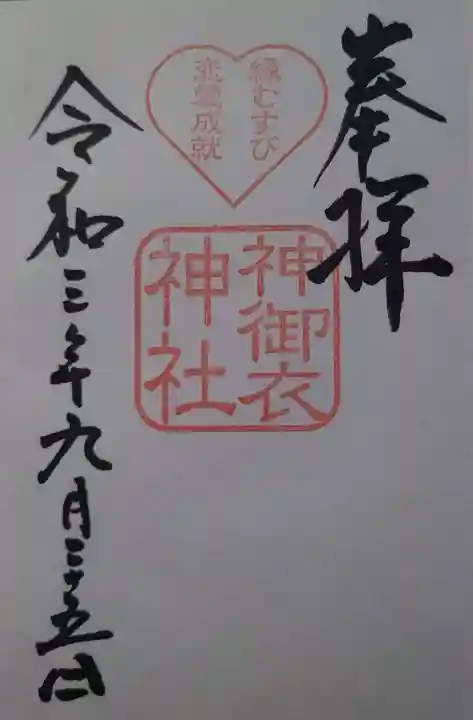 奉拝
縁むすび
恋愛成就
神御衣
神社
令和三年九月二十五日